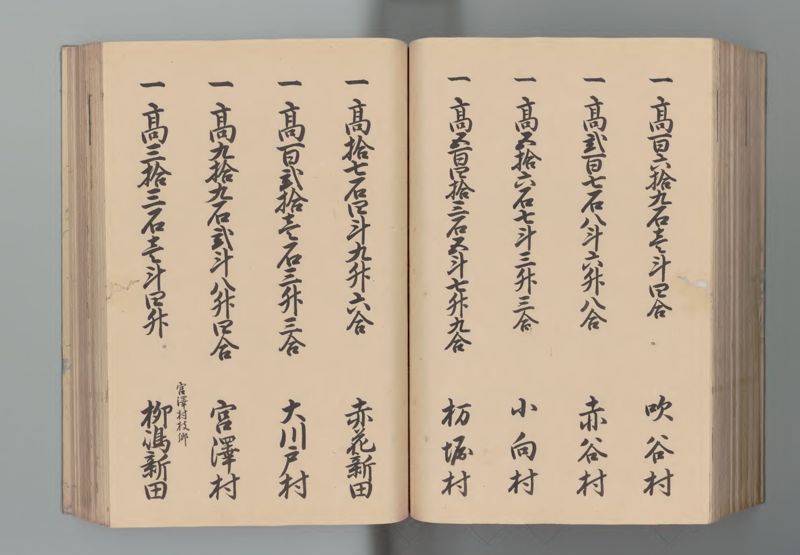 一 高百六拾九石壱斗四合 吹谷村
一 高弐百七石八斗六升八合 赤谷村
一 高五拾六石七斗三升三合 小向村
一 高五百四拾三石五斗七升九合 枥堀村
一 高拾七石四斗九升六合 赤花新田
一 高百弐拾壱石三升三合 大川戸村
一 高九拾九石弐斗八升四合 宮澤村
宮澤村枝郷
一 高三拾三石壱斗四升 柳嶋新田